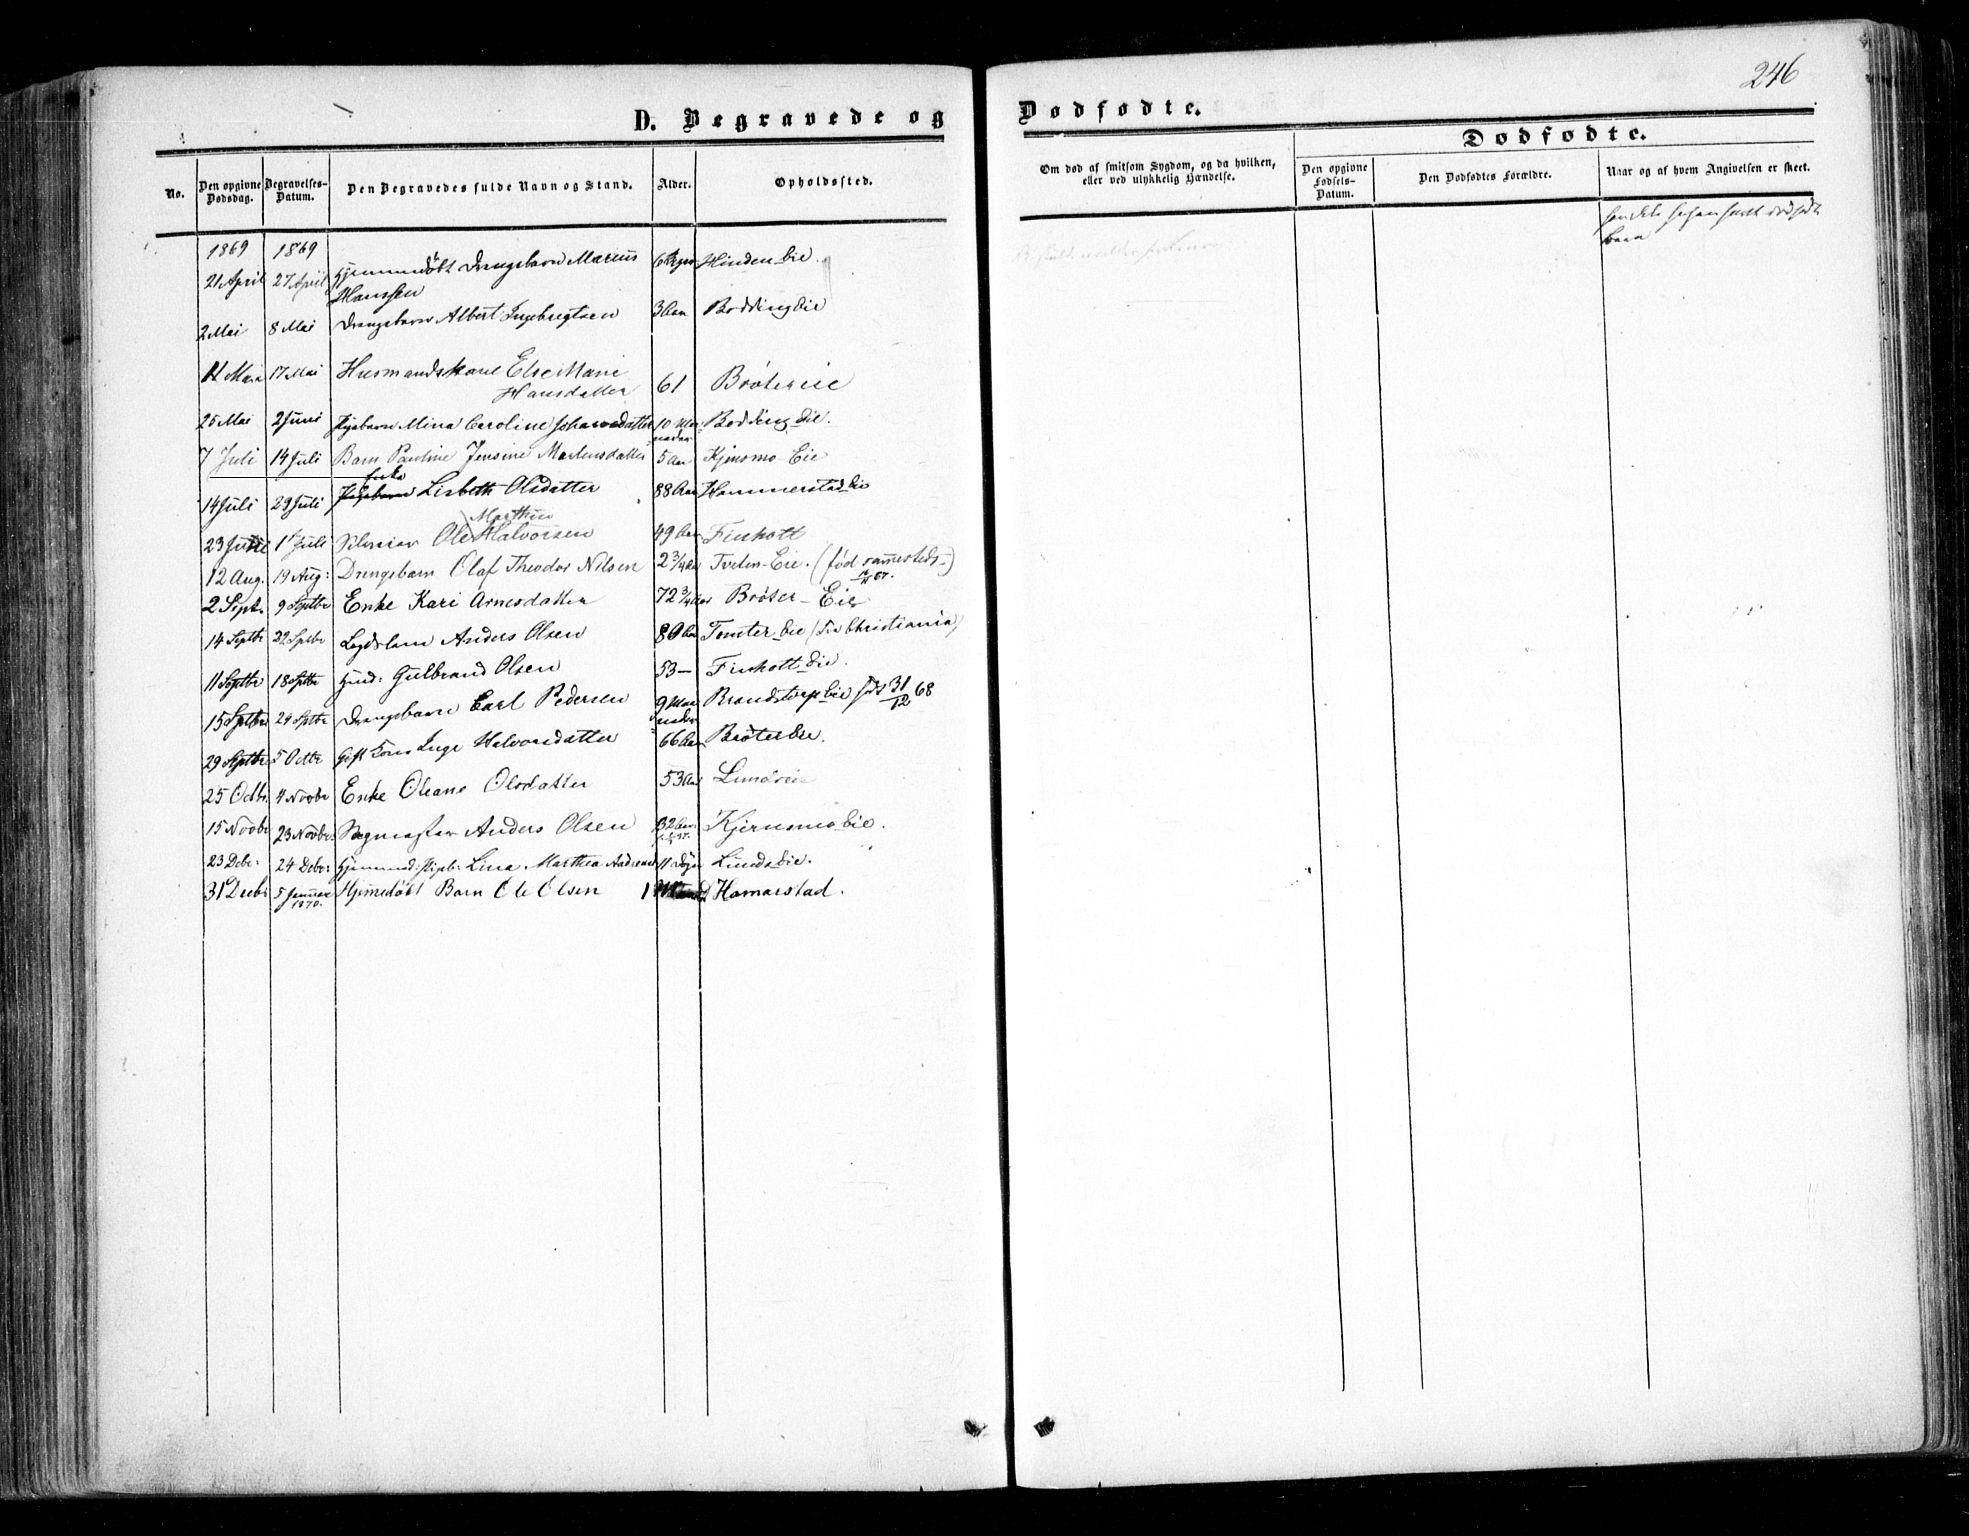 246
D. Begravede og Dødfødte.
Dødfødte.
No.
Den opgivne Dødsdag.
Begravelses-Datum.
Den Begravedes fulde Navn og Stand.
Alder.
Opholdssted.
Om død af smitsom Sygdom, og da hvilken, eller ved ulykkelig Hændelse.
Den opgivne Fødsels-Datum.
Den Dødfødtes Forældre.
Naar og af hvem Angivelsen er skeet.
1869 1869
21 April 27 April Hjemmedøbt Drengebarn Marius Hinden Eie.
Hanssen
2 Mai 8 Mai Drengebarn Albert Ingebregtsen 3 Aar Bødding Eie
11 17 Mai Husmandskone Else Marie
Hansdatter 61 Brøtereie
25 Mai 2 Juni Pigebarn Mina Caroline Johannesdatter 10 Maaneder Bødding Eie.
7 Juli 14 Juli Barn Pauline Jensine Martinsdatter 5 Aar Kjensmo-Eie
14 Juli 29 Juli Lisbeth Olsdatter 88 Aar Hammerstad Eie
Marthin
23 1 Juli Ole Halvorsen 49 Aar Finholt
12 Aug. 19 Aug: Drengebarn Olaf Theodor Nilsen 2 3/4 Aar Tveten-Eie. (fød sammesteds)
2 Sept. 9 Septbr Enke Kari Arnesdatter 72 3/4 Aar Brøter-Eie
14 Septbr 22 Septbr Lægdslem Anders Olsen 80 Aar Tomter Eie (fra Christiania)
11 Septbr 18 Septbr Gulbrand Olsen 53 – Finholt Eie.
15 Septbr 24 Septbr Drengebarn Carl Pedersen 9 Maaneder Brandstorp Eie født 31/12 68
29 Septbr 5 Octbr Gift Kone Inge Halvorsdatter 66 Aar Brøter Eie.
25 Octbr. 4 Novbr Enke Oleane Olsdatter 53 Aar Lundeie
15 Novbr 23 Novbr: Anders Olsen 32 Aar Kjensmo Eie.
23 Debr: 24 Debr: Lina Marthea 11 Dage Lunds Eie.
31 Decbr 5 Januar 1870. Hjemedøbt Barn Ole Olsen 1 Hamarstad.